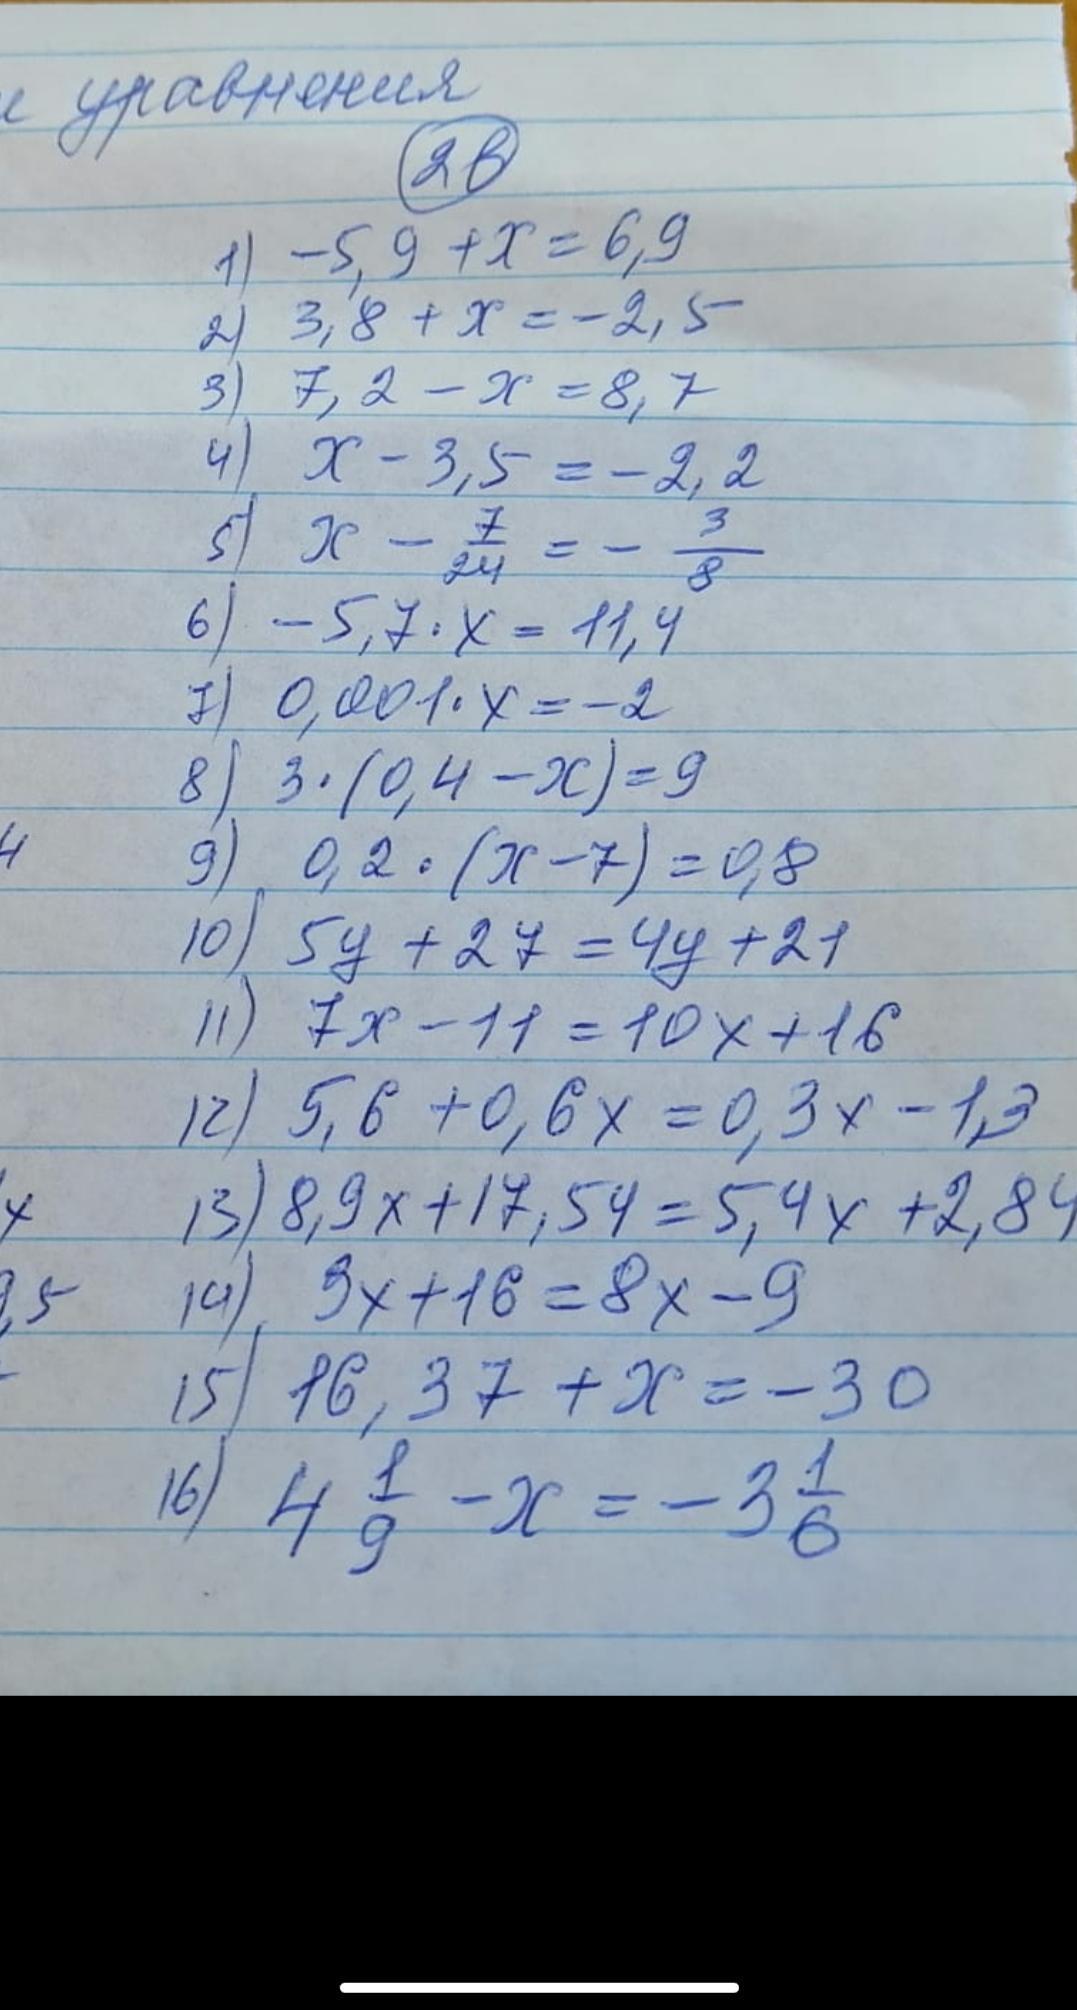 и уравнения
2в
1) -5,9 + x = 6,9
2) 3,8 + x = -2,5
3) 7,2 - x = 8,7
4) x - 3,5 = -2,2
5) x - 7/24 = - 3/8
6) -5,7 · x = 11,4
7) 0,001 · x = -2
8) 3 · (0,4 - x) = 9
4
9) 0,2 · (x - 7) = 0,8
10) 5y + 27 = 4y + 21
11) 7x - 11 = 10x + 16
12) 5,6 + 0,6x = 0,3x - 1,3
x
13) 8,9x + 17,54 = 5,4x + 2,84
,5
14) 9x + 16 = 8x - 9
15) 16,37 + x = -30
16) 4 1/9 - x = -3 1/6